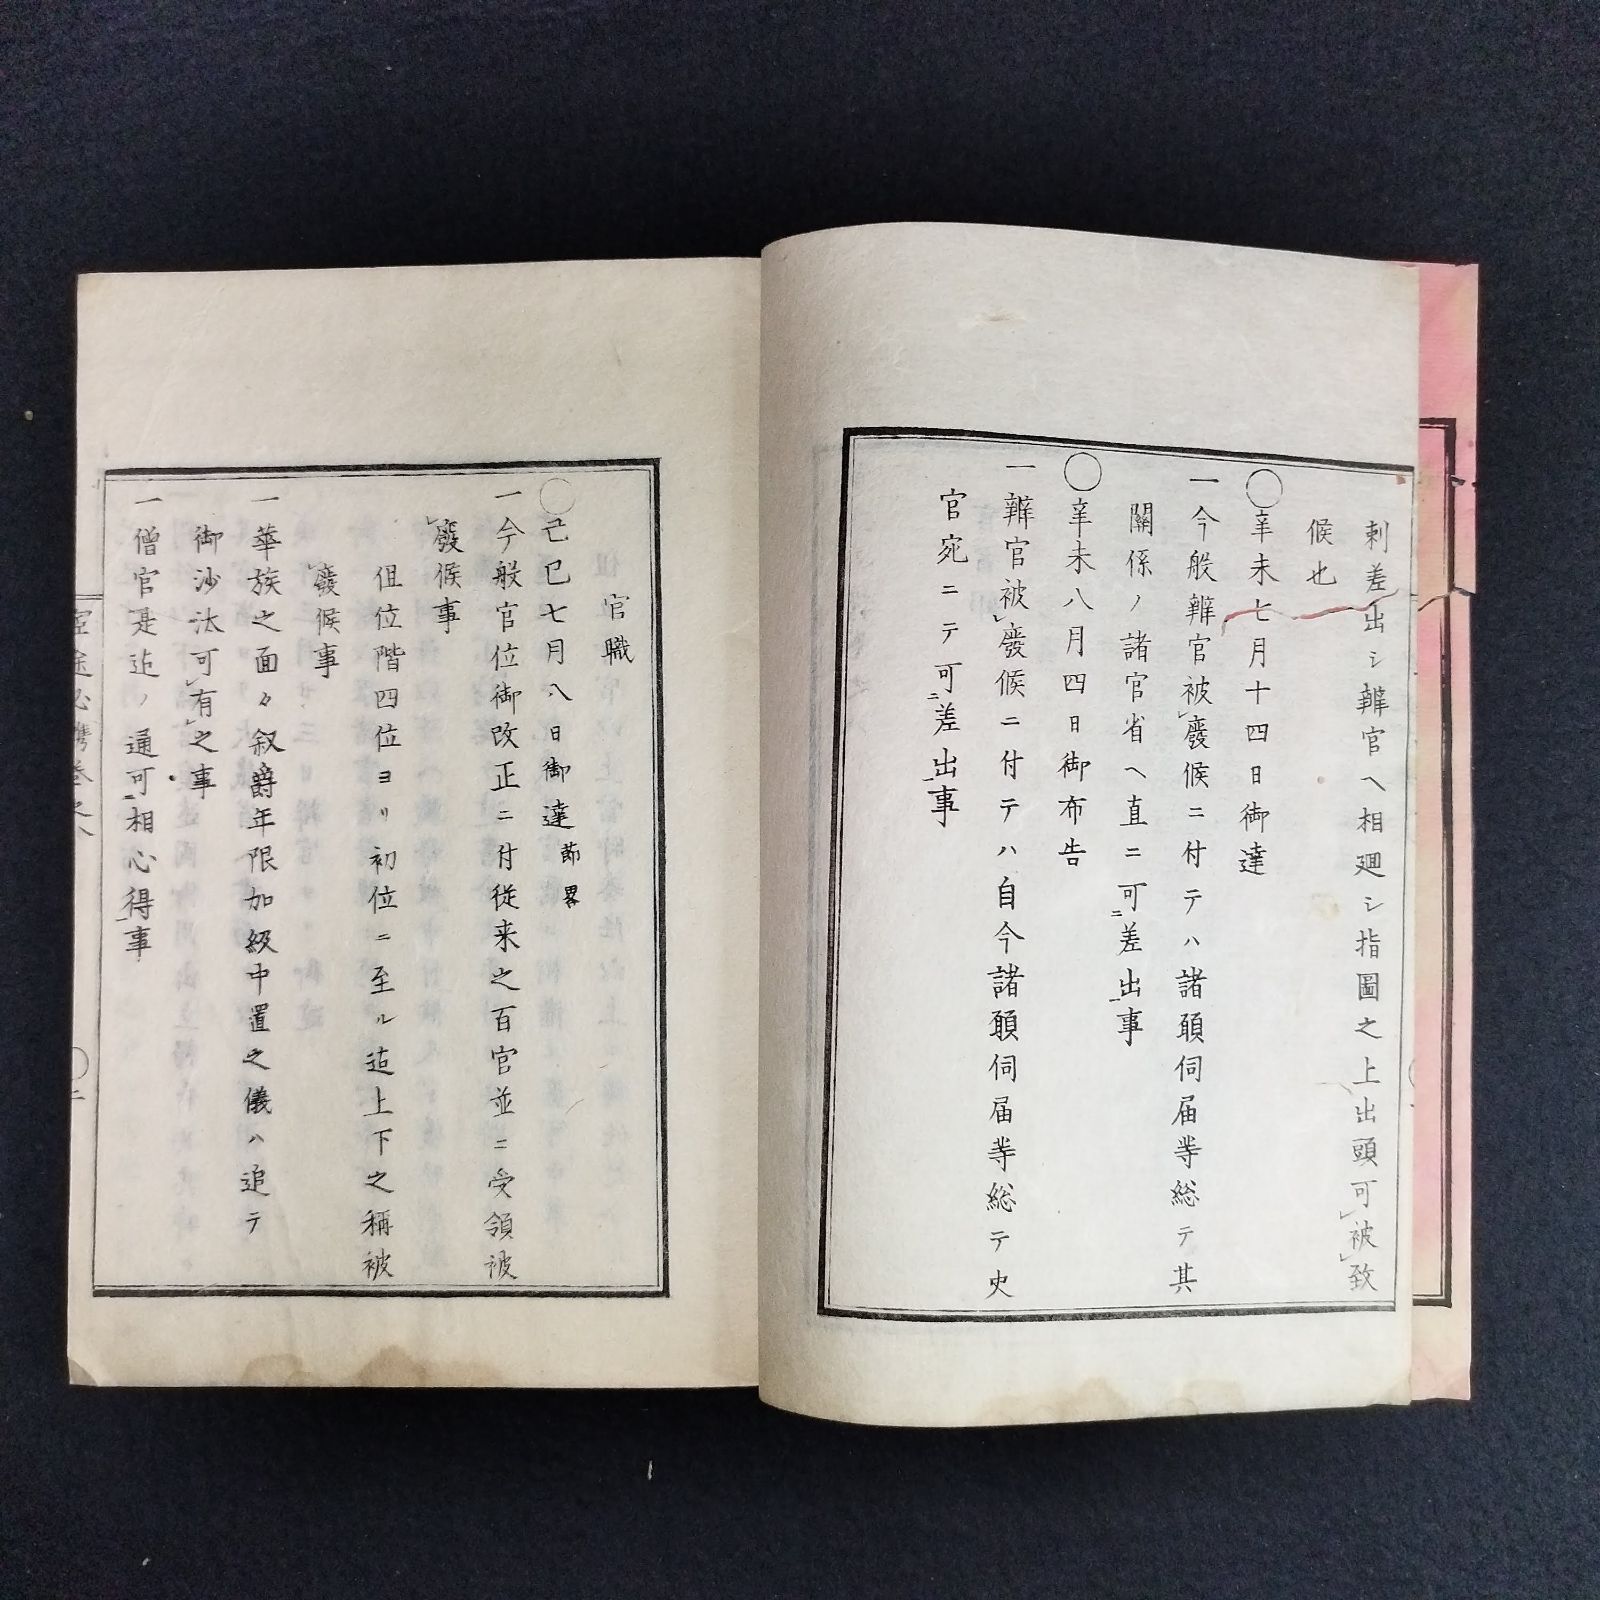 刺差出シ辨官ヘ相廻シ指圖之上出頭可被致
候也
○辛未七月十四日御達
一今般辨官被廢候ニ付テハ諸願伺届等総テ其
關係ノ諸官省ヘ直ニ可差出事
○辛未八月四日御布告
一辨官被廢候ニ付テハ自今諸願伺届等総テ史
官宛ニテ可差出事
官職
○己巳七月八日御達節畧
一今般官位御改正ニ付従来之百官並ニ受領被
廢候事
但位階四位ヨリ初位ニ至ル迠上下之称被
廢候事
一華族之面々叙爵年限加級中置之儀ハ追テ
御沙汰可有之事
一僧官是迠ノ通可相心得事
必携巻之八
○二